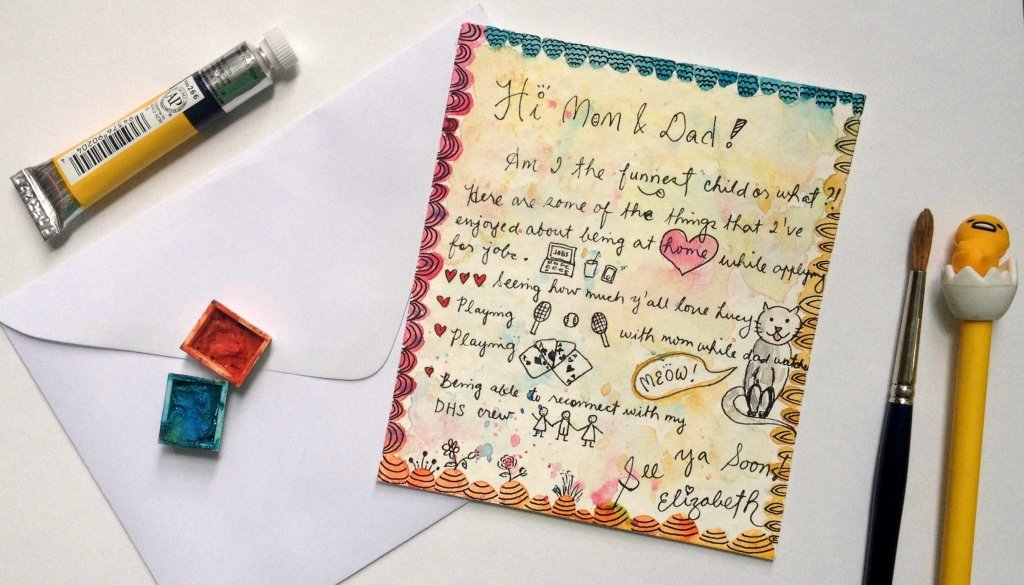 Hi Mom & Dad!
Am I the funnest child or what?!
Here are some of the things that I've
enjoyed about being at home while applying
for jobs. JOBS
Seeing how much y'all love Lucy
Playing with mom while dad watches
Playing
MEOW!
Being able to reconnect with my
DHS crew.
See ya Soon,
Elizabeth
AP
266